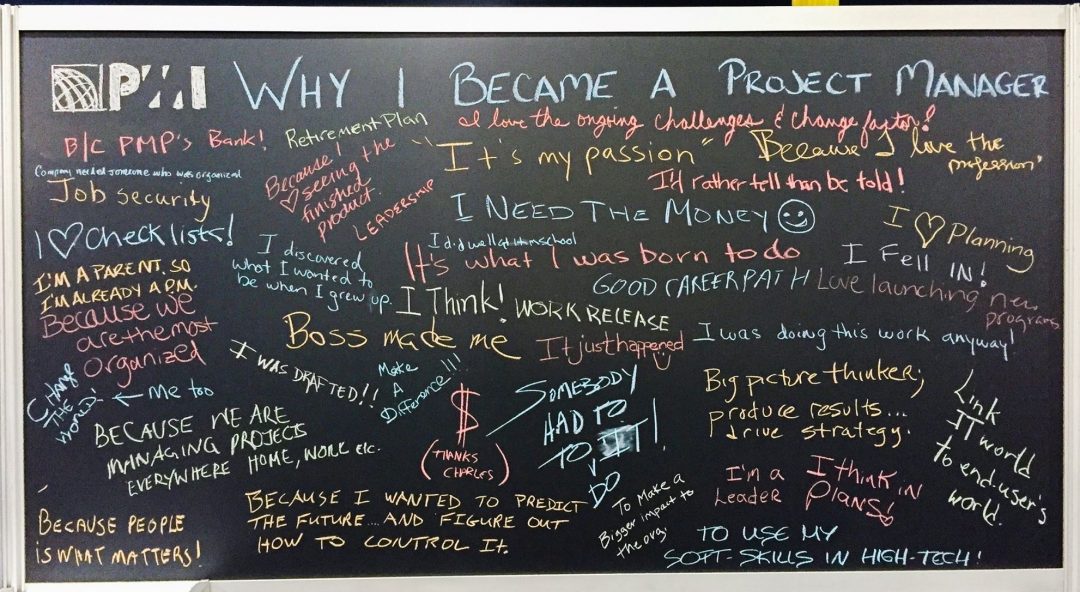 PMI WHY I BECAME A PROJECT MANAGER
B/C PMP's Bank!
Retirement Plan
I love the ongoing challenges & change factor!
Company needed someone who was organized
Job security
Because I
♡ seeing the
finished
product.
LEADERSHIP
"It's my passion"
Because I love the
profession"
I'd rather tell than be told!
I NEED THE MONEY ☺
I ♡ Planning
I ♡ Checklists!
I discovered
what I wanted to
be when I grew up.
I did well at it in school
It's what I was born to do
I FELL IN!
I'M A PARENT, SO
I'M ALREADY A P.M.
GOOD CAREER PATH
Love launching new
programs
Because we
are the most
organized
I Think!
WORK RELEASE
Boss made me
It just happened
I was doing this work anyway!
CHANGE
THE
WORLD!
← Me too
I WAS DRAFTED!!
Make
A
Difference!!!
$
(THANKS
CHARLES)
SOMEBODY
HAD TO
TO IT!
DO
Big picture thinker;
produce results...
drive strategy.
Link
IT world
to end-user's
world.
BECAUSE WE ARE
MANAGING PROJECTS
EVERYWHERE HOME, WORK etc.
I'm a
Leader
I think in
Plans!
BECAUSE PEOPLE
IS WHAT MATTERS!
BECAUSE I WANTED TO PREDICT
THE FUTURE.... AND FIGURE OUT
HOW TO CONTROL IT.
To Make a
Bigger impact to
the org.
TO USE MY
SOFT-SKILLS IN HIGH-TECH!